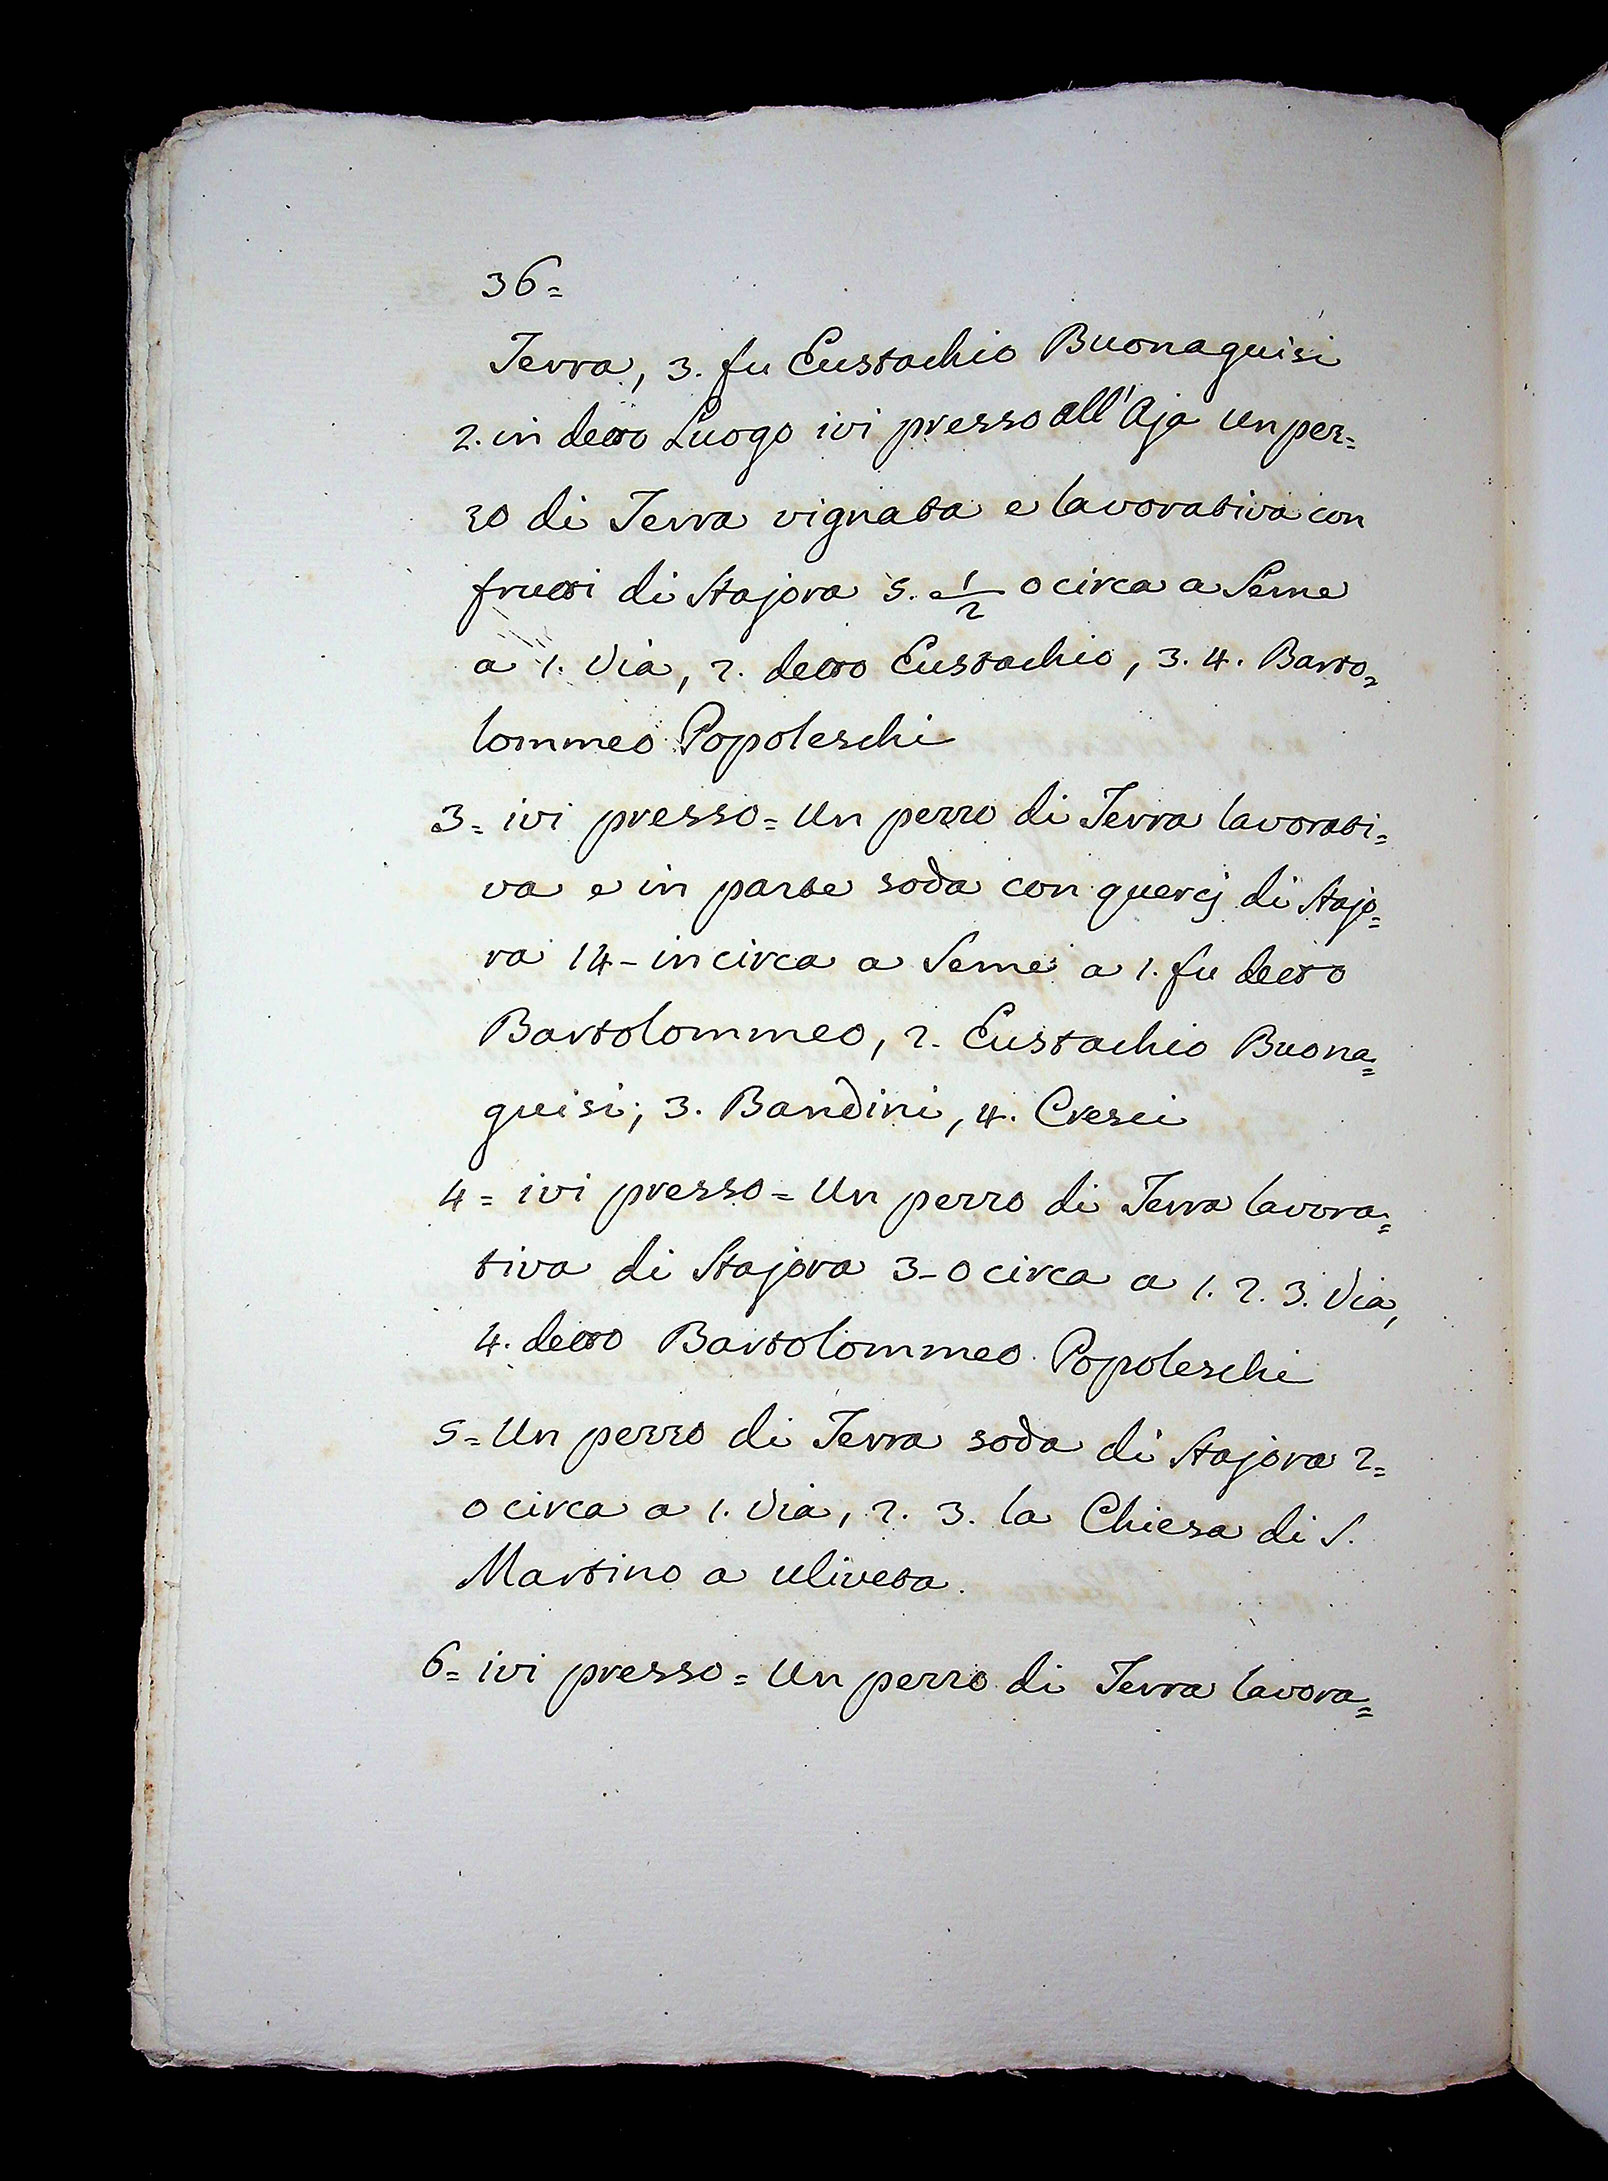 36=
Terra, 3. fu Eustachio Buonaguisi
2. in detto Luogo ivi presso all'Aja Un pez=
zo di Terra vignata e lavorativa con
frutti di Stajora 5. 1/2 o circa a Seme
a 1. Via, 2. detto Eustachio, 3. 4. Barto=
lommeo Popoleschi
3= ivi presso= Un pezzo di Terra lavorati=
va e in parte soda con quercj di Stajo=
ra 14- incirca a Seme a 1. fu detto
Bartolommeo, 2. Eustachio Buona=
guisi; 3. Bandini, 4. Cresci
4= ivi presso= Un pezzo di Terra lavora=
tiva di Stajora 3- o circa a 1. 2. 3. Via,
4. detto Bartolommeo Popoleschi
5= Un pezzo di Terra soda di Stajora 2=
o circa a 1. Via, 2. 3. la Chiesa di S.
Martino a Uliveta.
6= ivi presso= Un pezzo di Terra lavora=